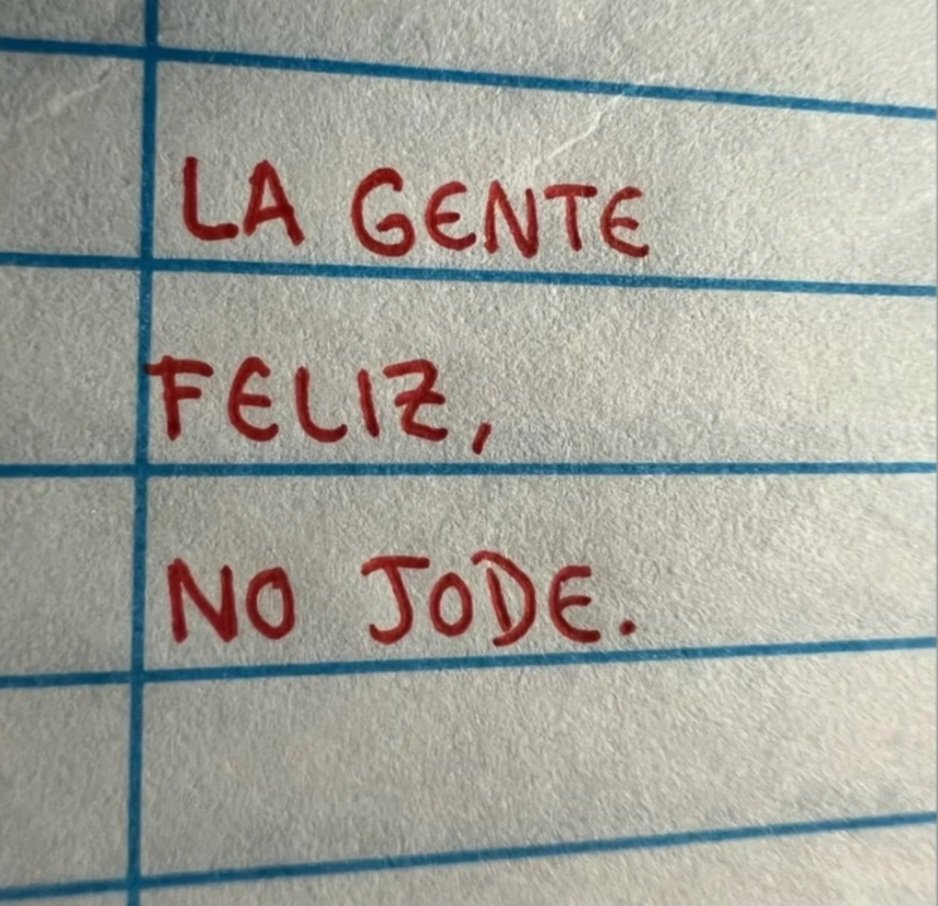 LA GENTE
FELIZ,
NO JODE.